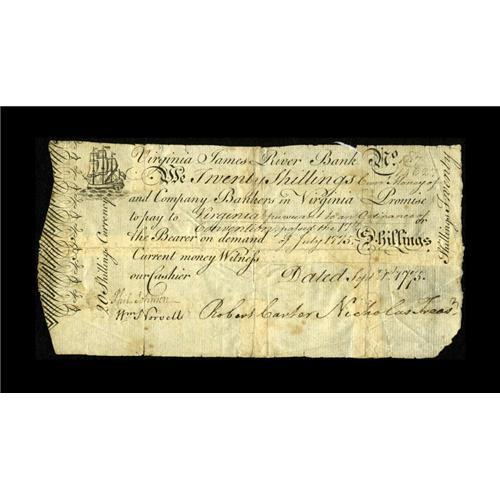 Virginia James River Bank No.
We Twenty Shillings Curr. Money of
and Company Bankers in Virginia Promise
to pay to Virginia pursuant to an Ordinance of
Convention passed the 17 or
the Bearer on demand of July 1775. Shillings
Current money Witness
our Cashier Dated Sept. 1st 1775.
Phil Johnson
Wm Norvell Robert Carter Nicholas Treas.
20 Shillings Currency
Shillings Twenty